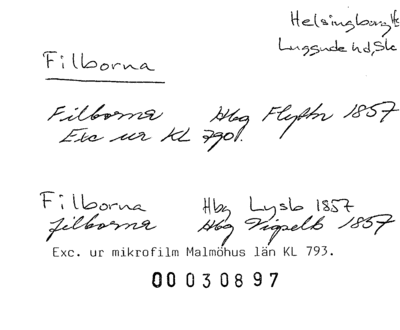 Helsingborg Hc
Luggude hd, Sk
Filborna
Filborna Hbg Flyttn 1857
Exc ur KL 790.
Filborna Hbg Lysb 1857
Filborna Hbg Vigselb 1857
Exc. ur mikrofilm Malmöhus län KL 793.
00030897